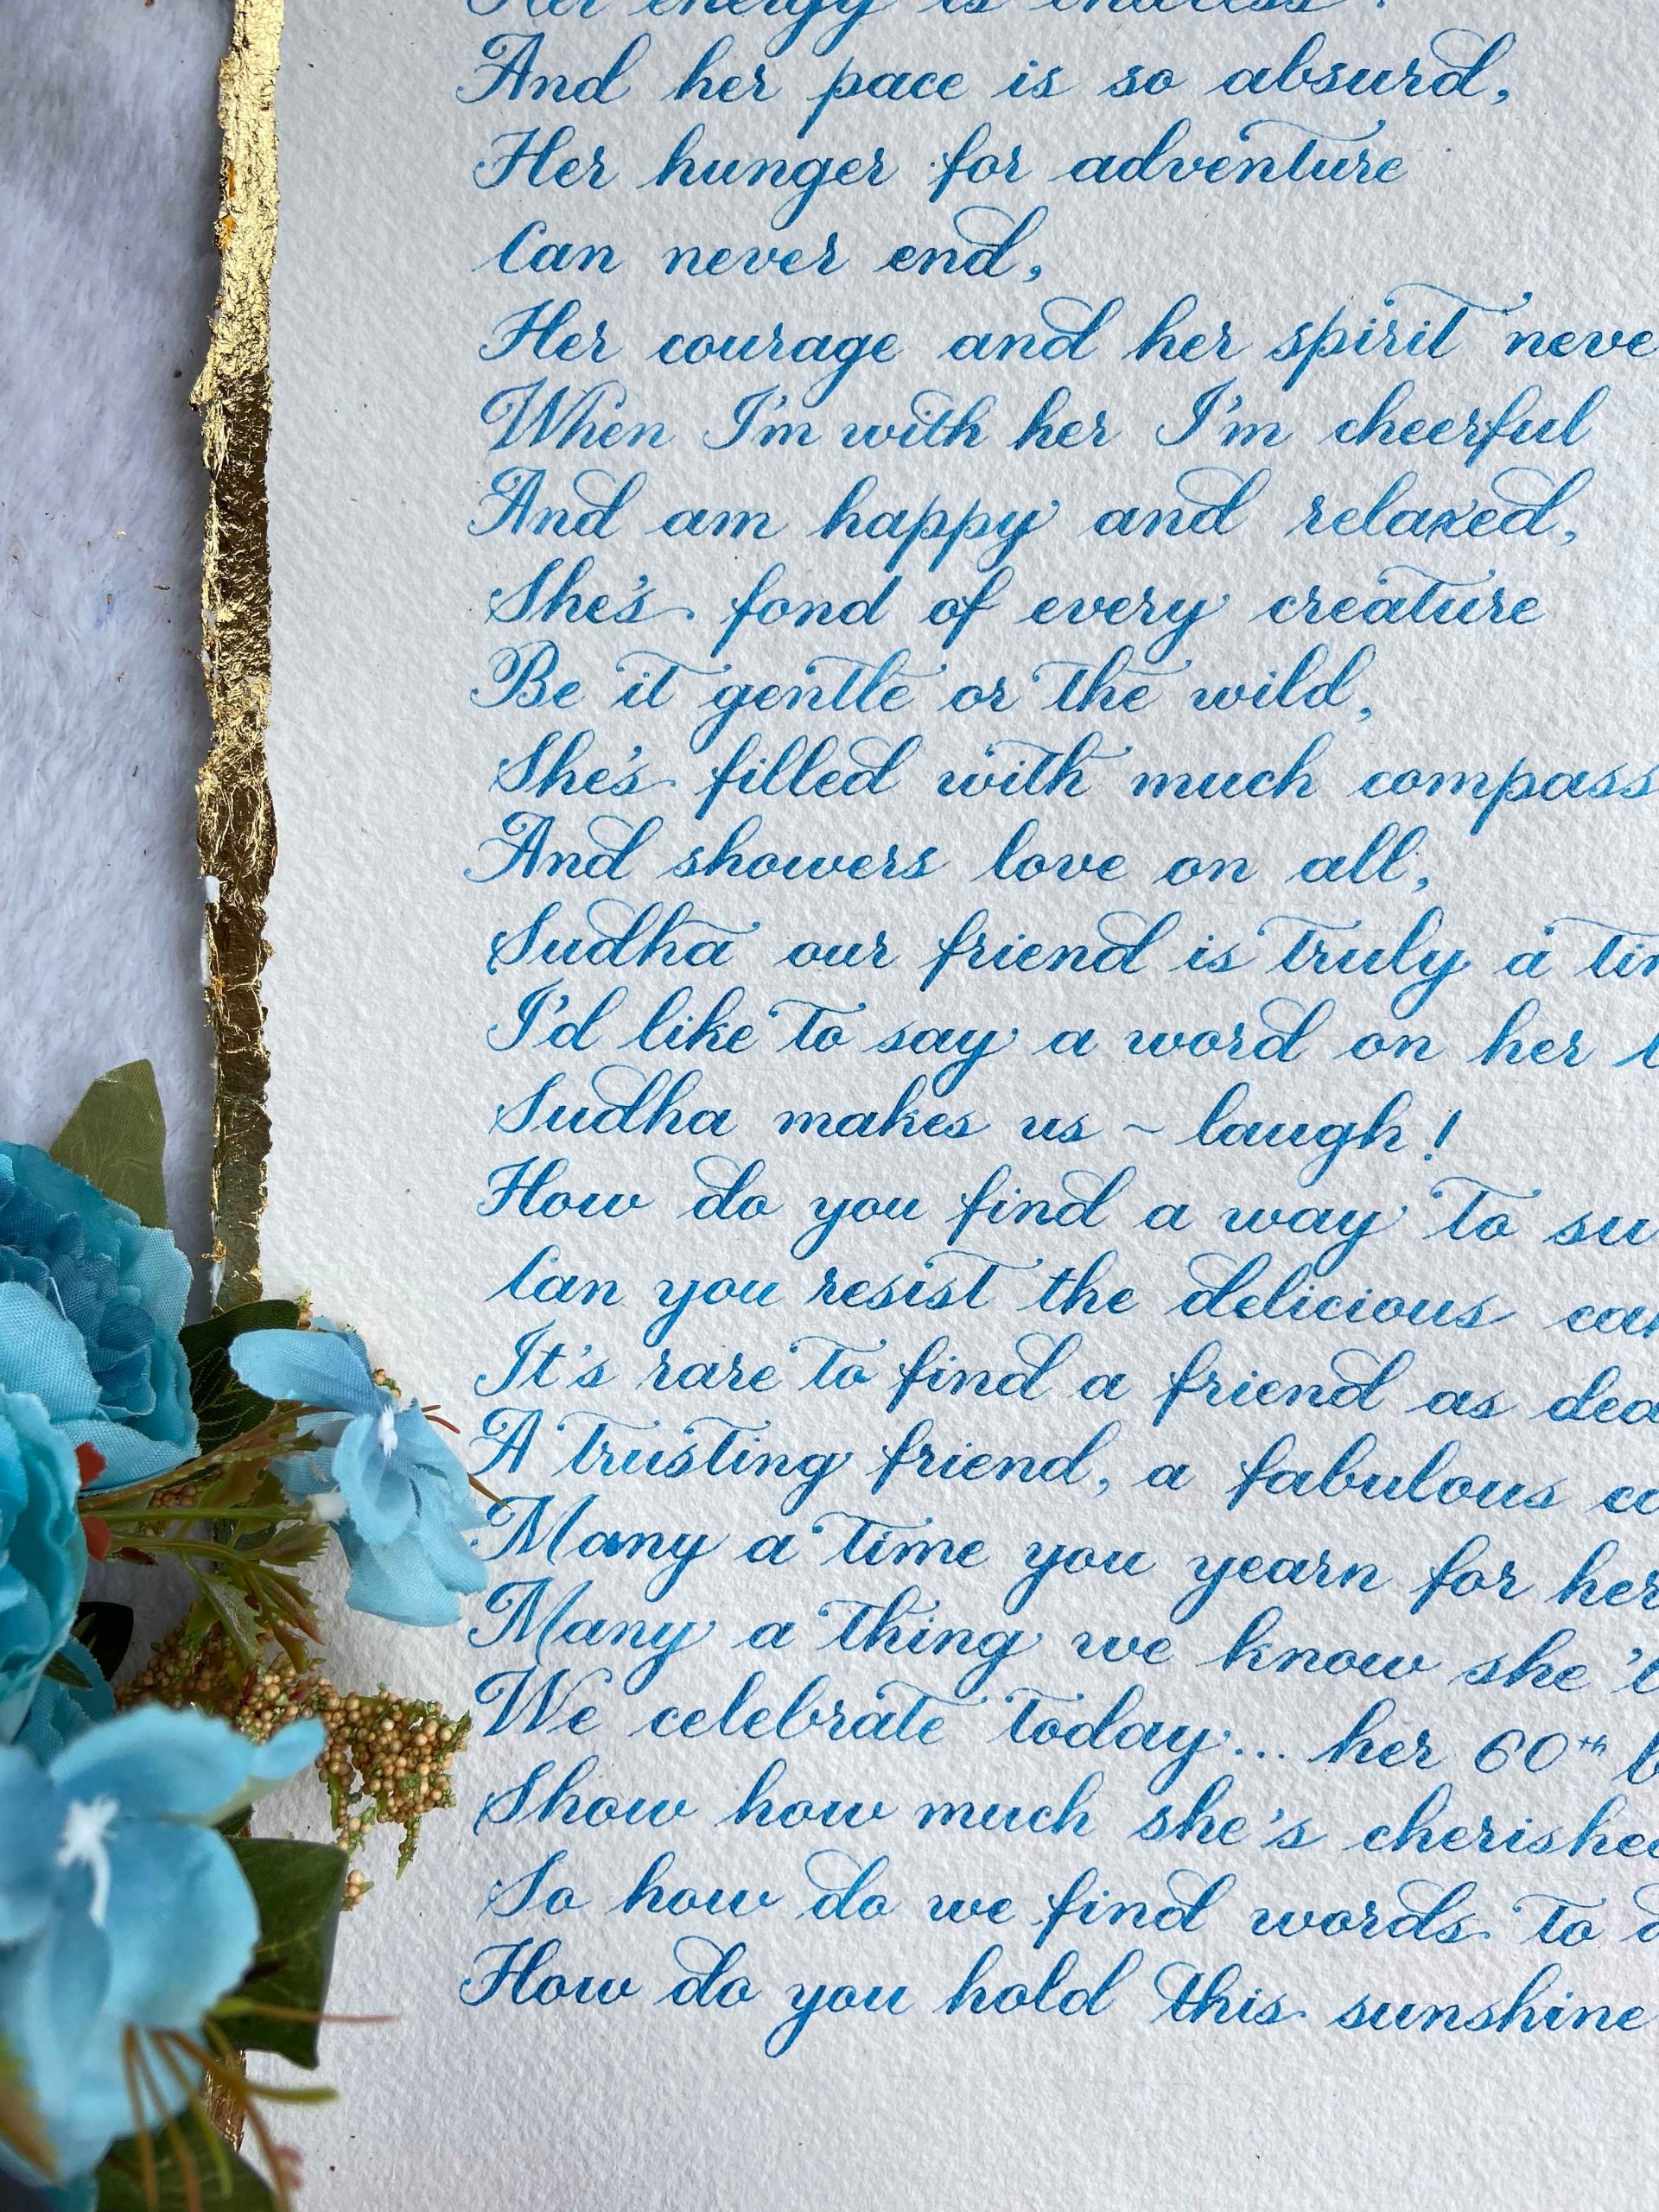 Her energy is endless
And her pace is so absurd,
Her hunger for adventure
Can never end,
Her courage and her spirit neve
When I'm with her I'm cheerful
And am happy and relaxed,
She's fond of every creature
Be it gentle or the wild,
She's filled with much compass
And showers love on all,
Sudha our friend is truly a
I'd like to say a word on her
Sudha makes us ~ laugh!
How do you find a way to su
Can you resist the delicious
It's rare to find a friend as dea
A trusting friend, a fabulous
Many a time you yearn for her
Many a thing we know she
We celebrate today... her 60th
Show how much she's cherished
So how do we find words to
How do you hold this sunshine